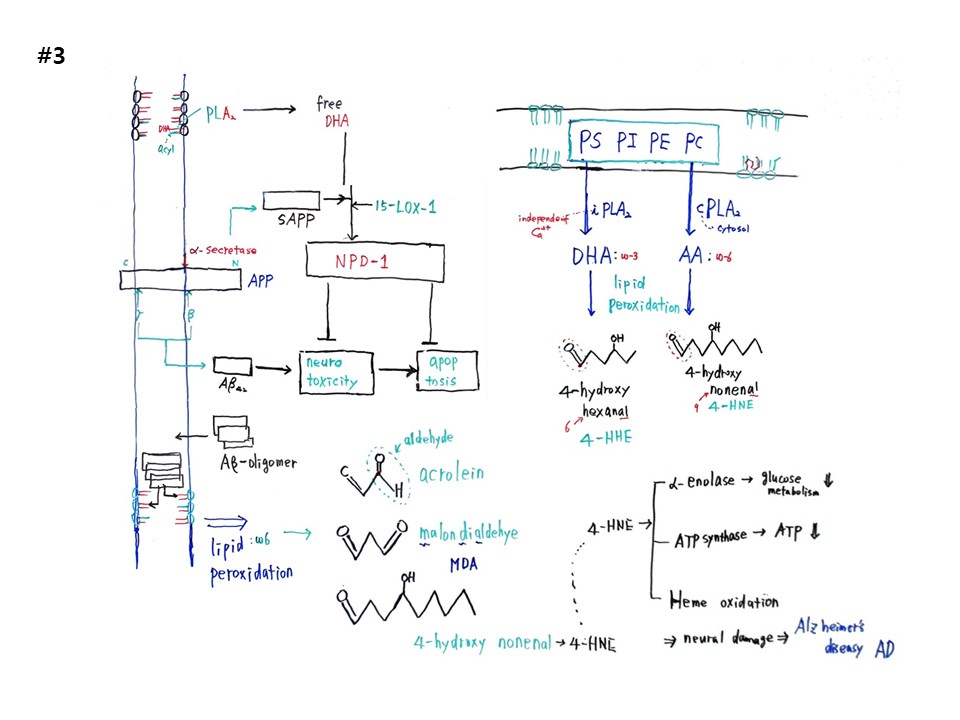 #3
PLA₂
free
DHA
DHA
acyl
sAPP
15-LOX-1
α-secretase
C
N
APP
NPD-1
γ
β
Aβ₄₂
neuro
toxicity
apop
tosis
Aβ-oligomer
lipid :ω6
peroxidation
aldehyde
C
H
acrolein
malondialdehye
MDA
OH
4-hydroxy nonenal → 4-HNE
PS PI PE PC
independent
Ca²⁺
iPLA₂
cPLA₂
cytosol
DHA:ω-3
AA:ω-6
lipid
peroxidation
OH
OH
4-hydroxy
hexanal
6
4-HHE
4-hydroxy
nonenal
9
4-HNE
4-HNE →
α-enolase → glucose ↓
metabolism
ATP synthase → ATP ↓
Heme oxidation
⇒ neural damage ⇒ Alzheimer's
diseasy AD